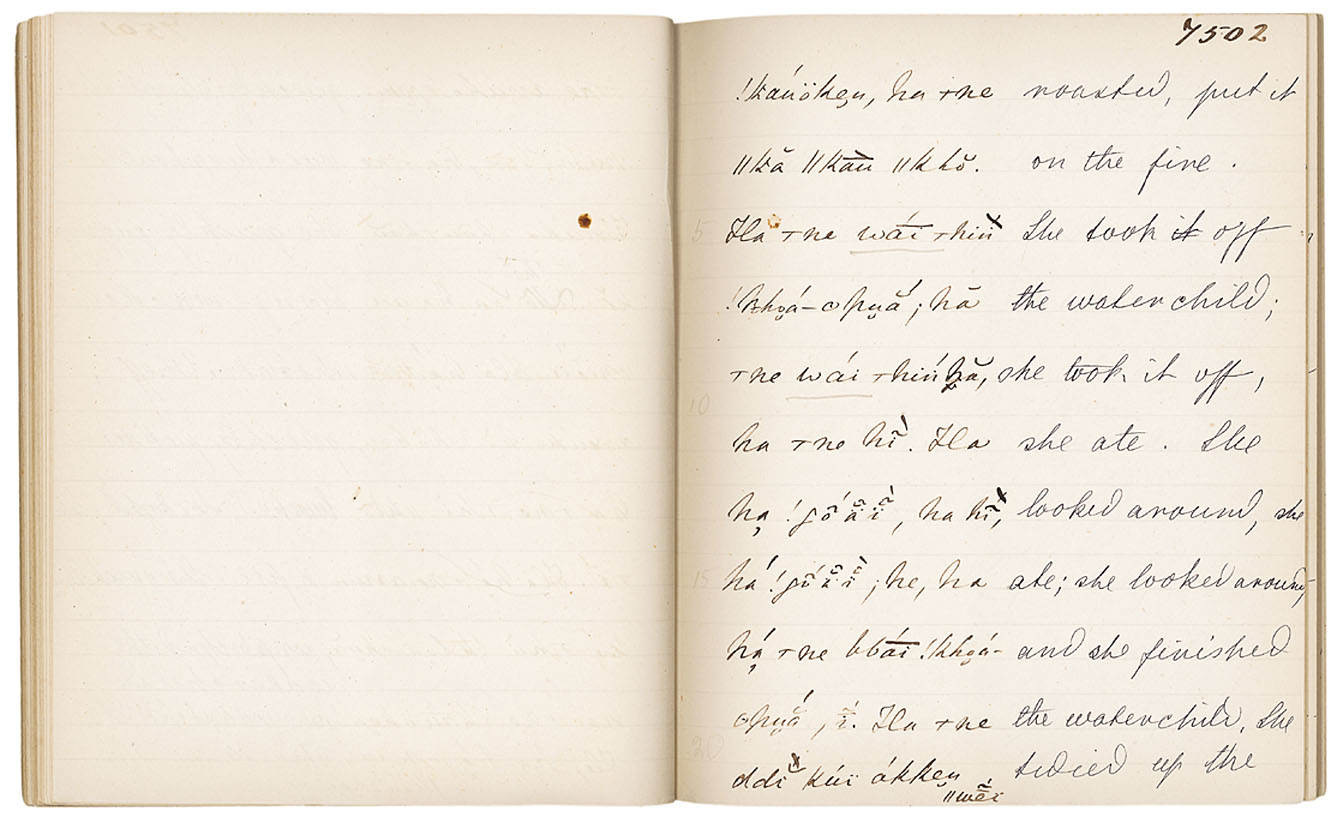 7502
!kaúïökẹn, ha ₸ne roasted, put it
||kă ||ka̅u ||khŏ. on the fire.
5 Ha ₸ne wái ₸hiń She took it off
!khọá-ʘpụá; hă the waterchild;
₸ne wái ₸hiń hă, she took it off,
10
ha ₸ne hĩ. Ha she ate. She
hạ !gṍä́ĩ, ha hĩ, looked around, she
15 há !gṍä́ĩ; he, ha ate; she looked around,
hạ́ ₸ne bbái !khọá- and she finished
ʘpụá, ĩ. Ha ₸ne the waterchild. She
20 ddĭ kúï ákkẹn ||wẽĩ tidied up the